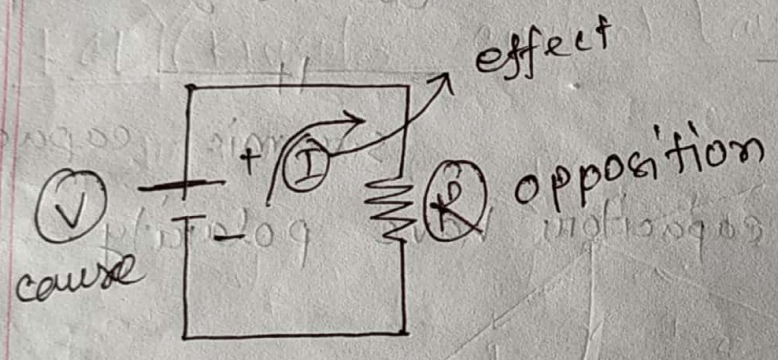 effect
+ I
V R opposition
-
cause